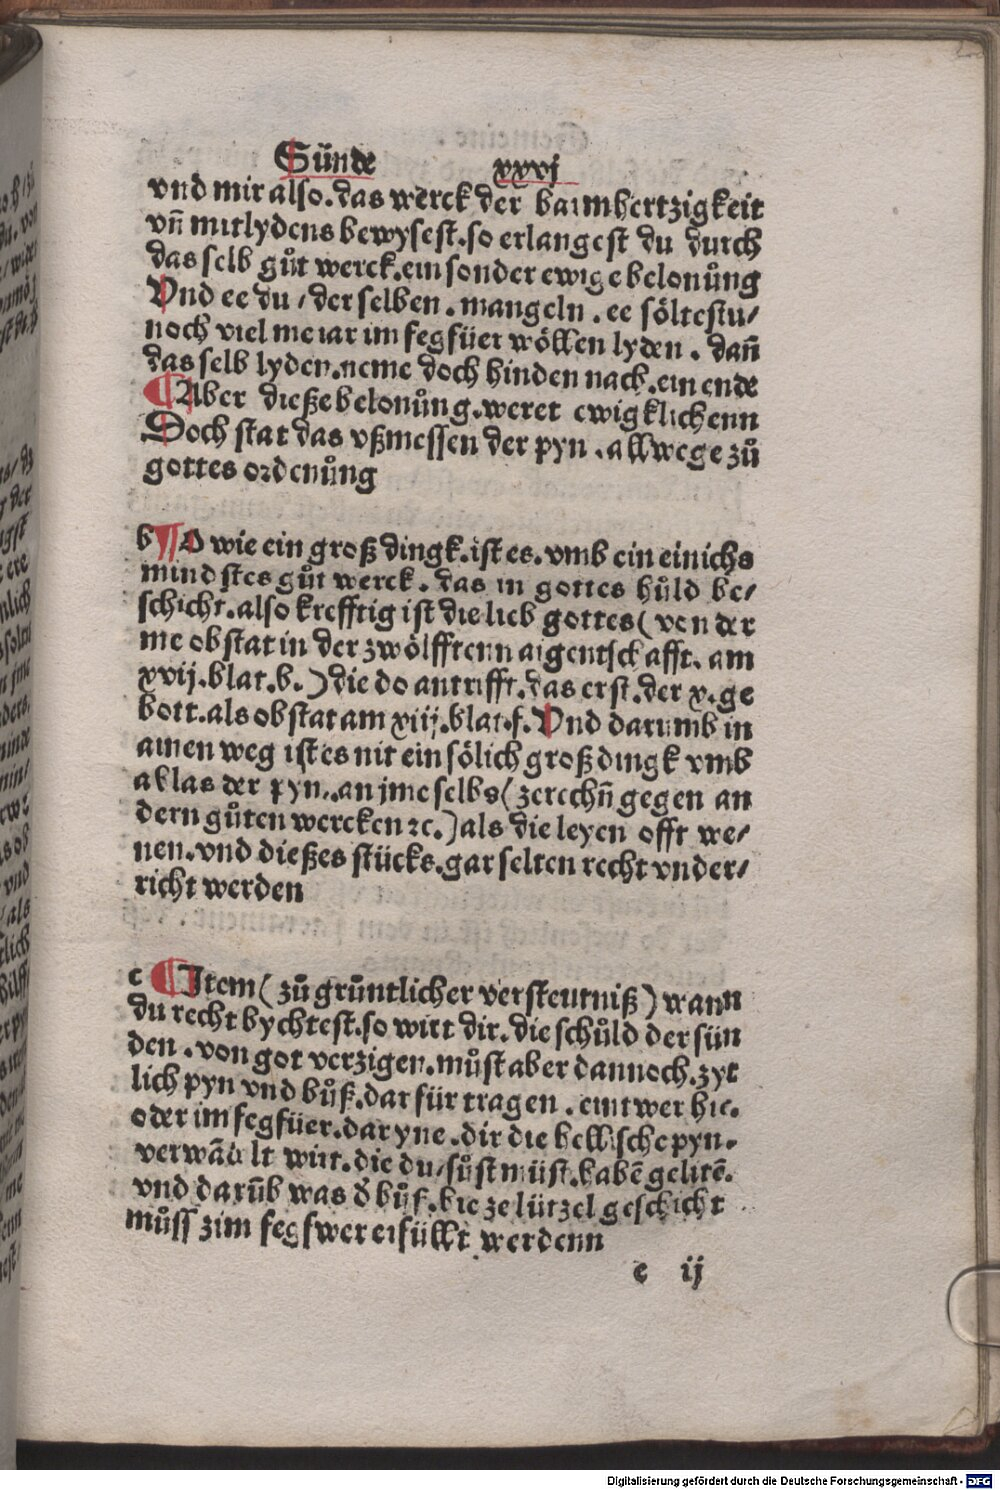 Sünde xxvj
vnd mir also. das werck der barmhertzigkeit
vñ mitlydens bewysest. so erlangest du durch
das selb gůt werck. ein sonder ewige belonůng
Vnd ee du / der selben. mangeln. ee söltestu/
noch viel me iar im fegfüer wöllen lyden. dañ
das selb lyden. neme doch hinden nach. ein ende
¶ Aber dieße belonůng. weret ewigklichenn
Doch stat das vßmessen der pyn. allwege zů
gottes ordenůng
b ¶ O wie ein groß dingk. ist es. vmb ein einichs
mindstes gůt werck. das in gottes hůld be/
schicht. also krefftig ist die lieb gottes (von der
me obstat in der zwölfftenn aigentschafft. am
xvij. blat. b.) die do antrifft. das erst. der x. ge
bott. als obstat am xiiij. blat. f. Vnd darumb in
ainen weg ist es nit ein sölich groß dingk vmb
ablas der pyn. an jme selbs (zerechñ gegen an
dern gůten wercken ꝛc.) als die leyen offt we/
nen. vnd dießes stücks. gar selten recht vnder/
richt werden
c ¶ Item (zů grůntlicher verstentniß) wann
du recht bychtest. so wirt dir. die schůld der sün
den. von got verzigen. můst aber dannoch. zyt
lich pyn vnd bůß. dar für tragen. eintwer hie.
oder im fegfüer. dar yne. dir die hellische pyn.
verwãdlt wirt. die du / sůst müst. habẽ gelitẽ.
vnd darũb was d̕ bůß. hie ze lützel geschicht
můss zim fegfwer erfüllt werdenn
e ij
Digitalisierung gefördert durch die Deutsche Forschungsgemeinschaft - DFG